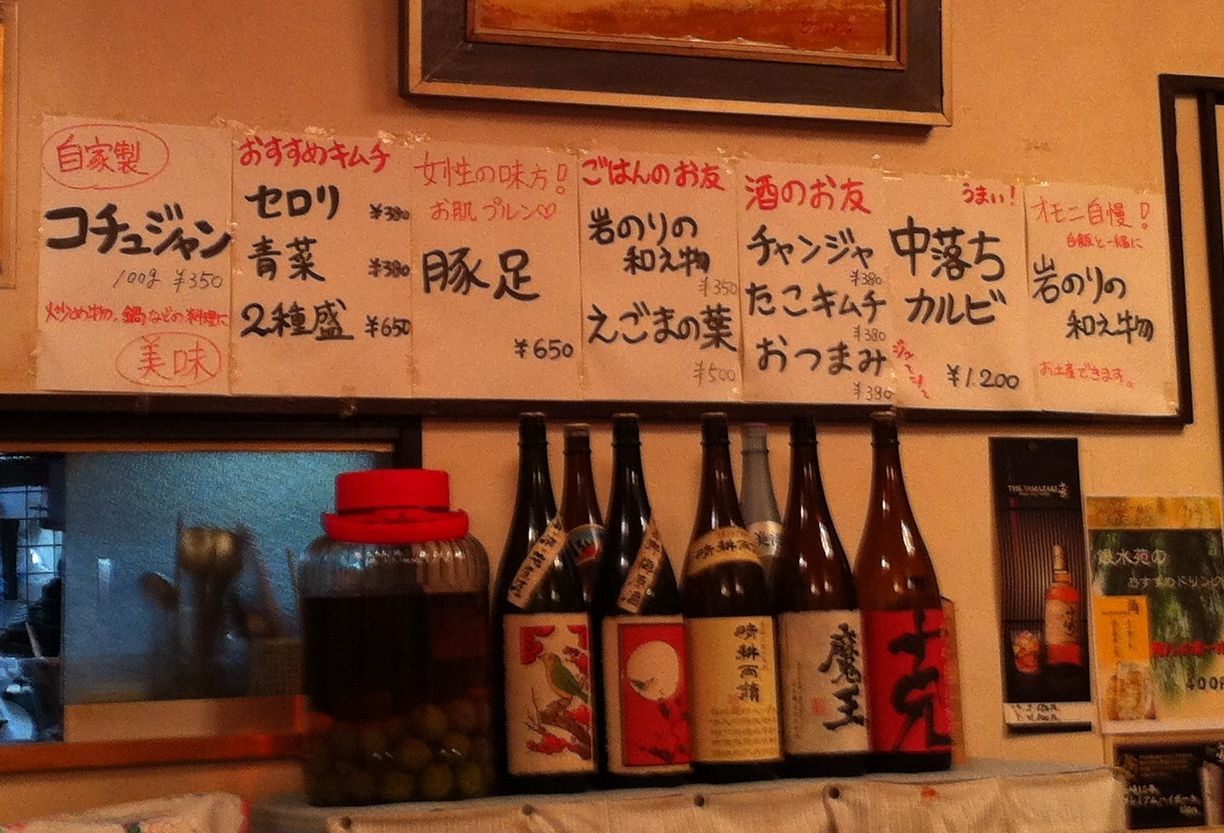 自家製
コチュジャン
100g ¥350
炒め物、鍋などの料理に
美味
おすすめキムチ
セロリ ¥380
青菜 ¥380
2種盛 ¥650
女性の味方!
お肌プルン♡
豚足
¥650
ごはんのお友
岩のりの
和え物
¥350
えごまの葉
¥500
酒のお友
チャンジャ
¥380
たこキムチ
¥380
おつまみ
¥380
うまい!
中落ち
カルビ
¥1.200
オモニ自慢!
白飯と一緒に
岩のりの
和え物
お土産できます。
晴耕雨讀
晴耕雨讀
魔王
THE YAMAZAKI
おすすめドリンク
400円